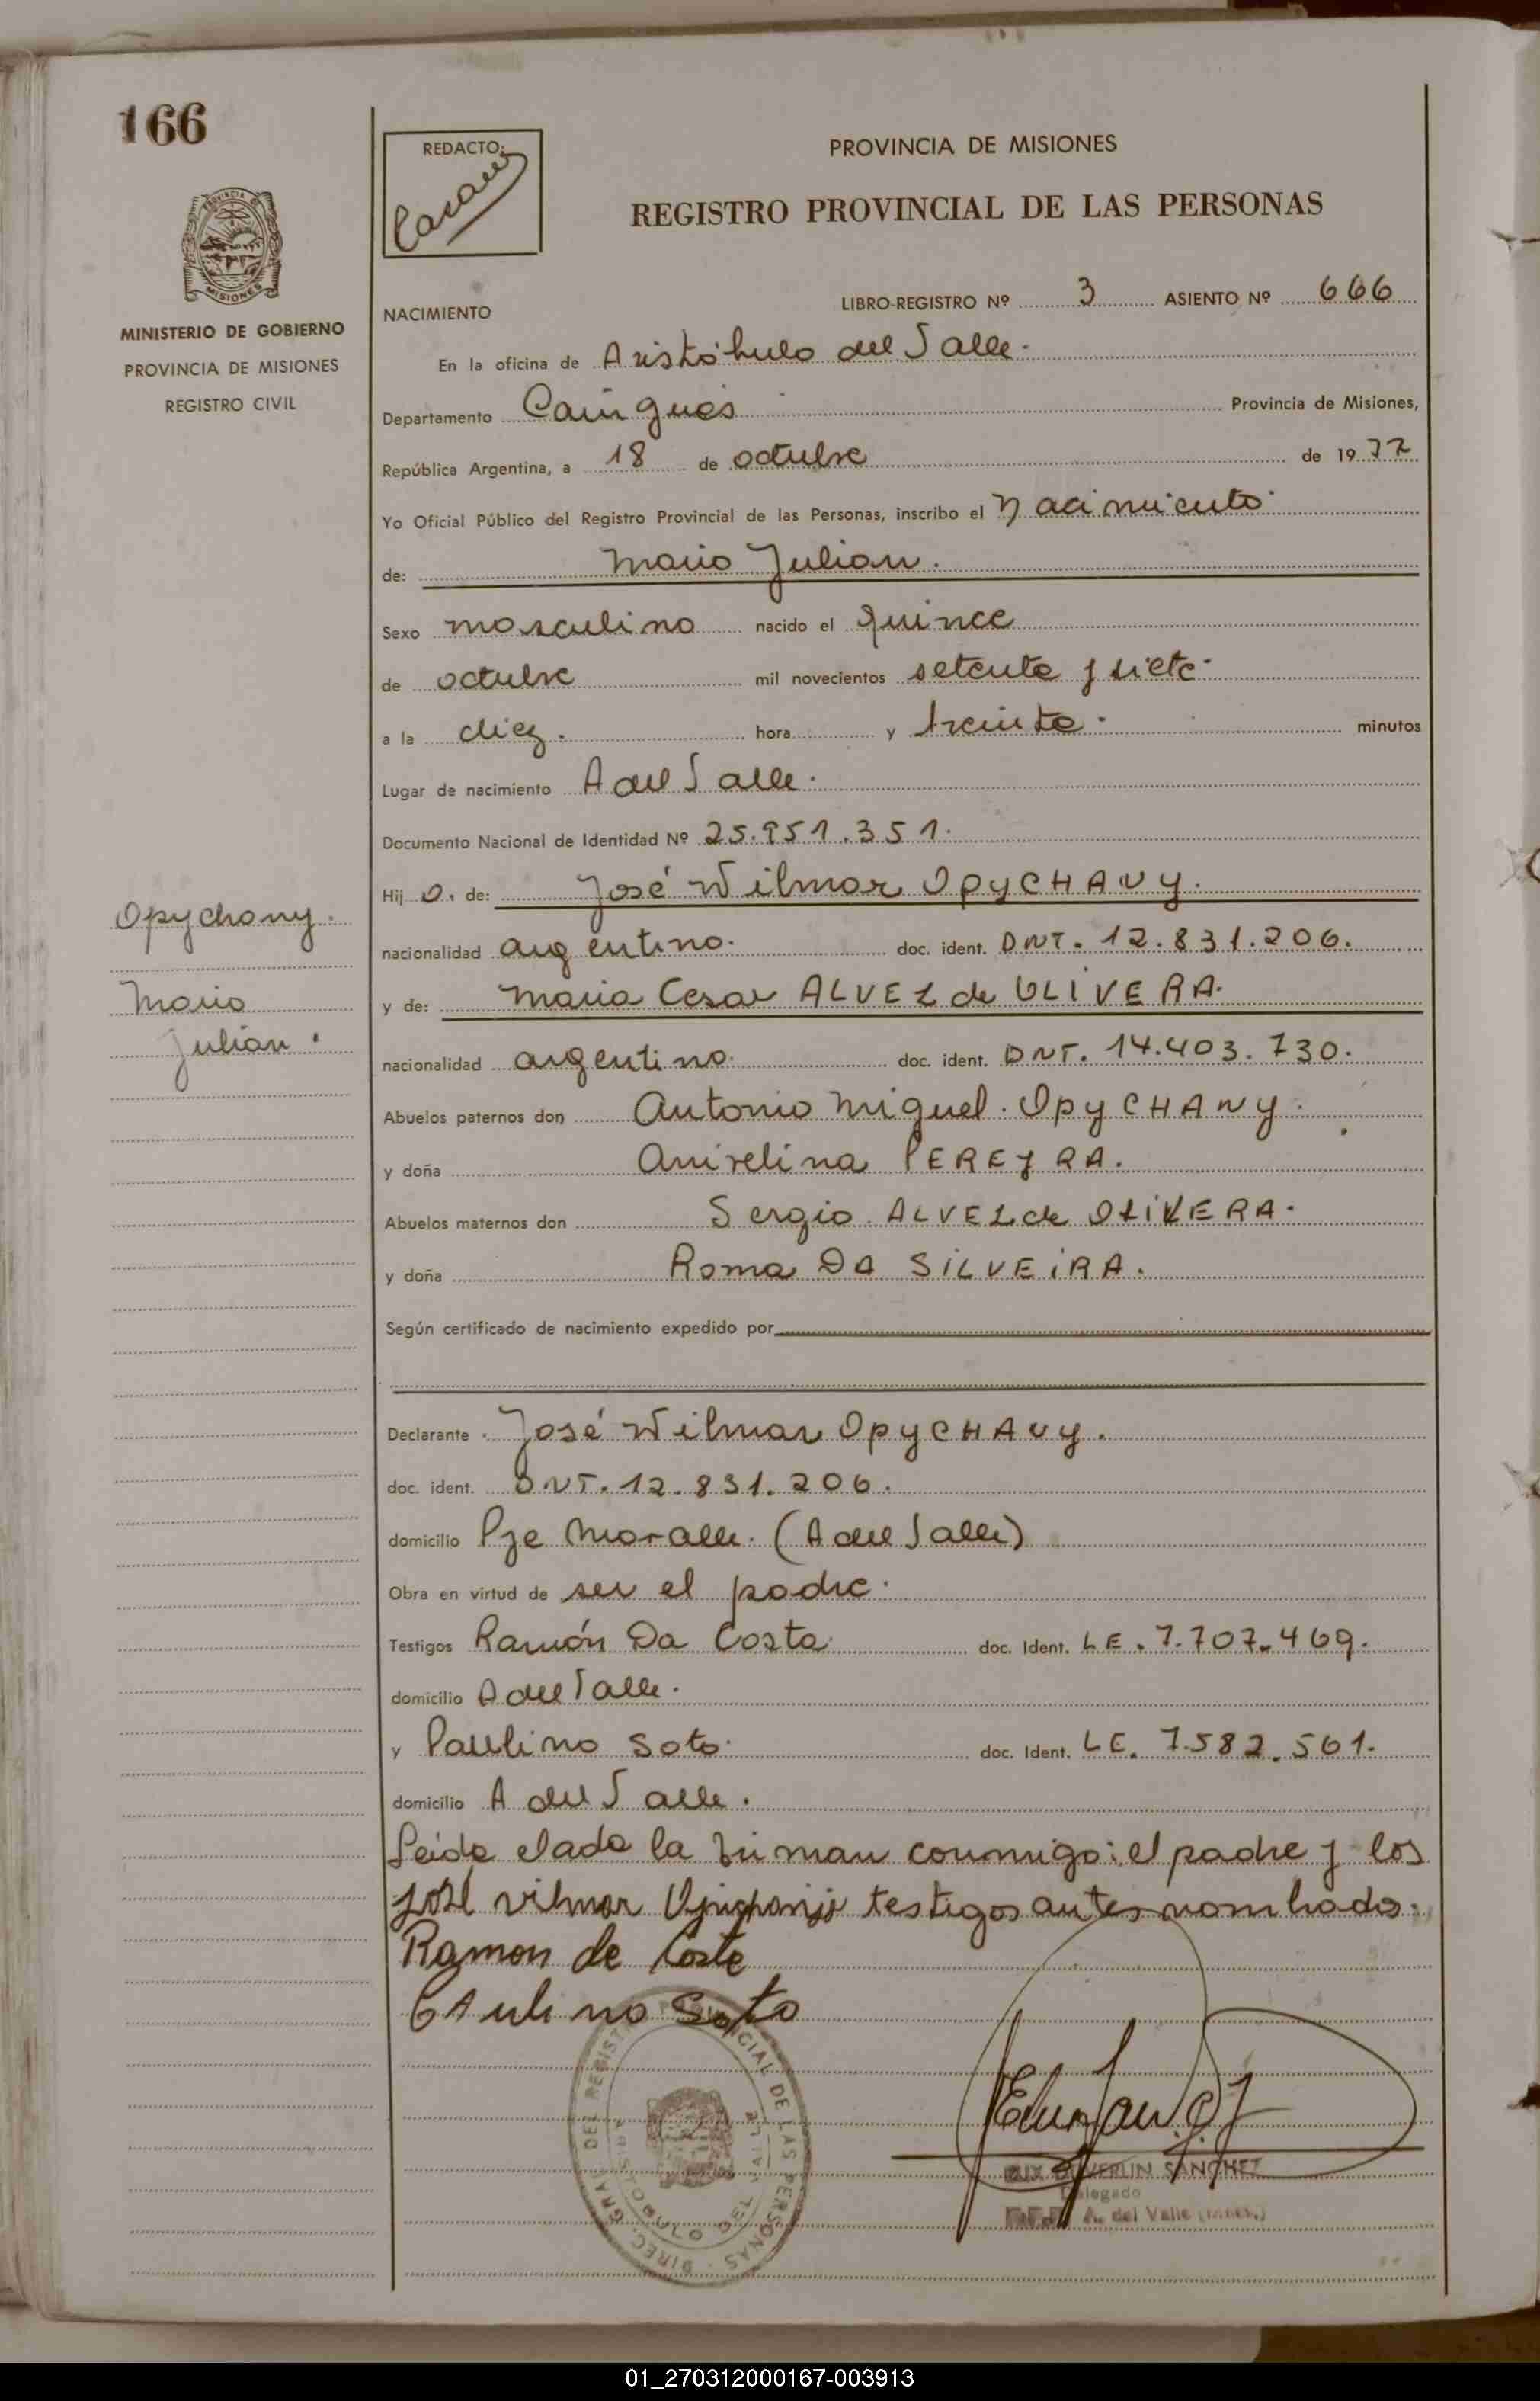 166
REDACTO:
PROVINCIA DE MISIONES
REGISTRO PROVINCIAL DE LAS PERSONAS
MISIONES
MINISTERIO DE GOBIERNO
PROVINCIA DE MISIONES
REGISTRO CIVIL
LIBRO-REGISTRO Nº 3 ASIENTO Nº 666
NACIMIENTO
En la oficina de Aristóbulo del Valle.
Departamento Cainguás Provincia de Misiones,
República Argentina, a 18 de octubre de 1977
Yo Oficial Público del Registro Provincial de las Personas, inscribo el Nacimiento.
de: Mario Julian.
Sexo masculino nacido el quince
de octubre mil novecientos setenta y siete.
a la diez. hora y treinta. minutos
Lugar de nacimiento A del Valle.
Documento Nacional de Identidad Nº 25.951.351.
Hij o. de: José Wilmar OpyCHANy.
nacionalidad argentino. doc. ident. DNI. 12.831.206.
y de: Maria Cesar ALVEZ de OLIVERA.
nacionalidad argentino. doc. ident. DNI. 14.403.730.
Abuelos paternos don Antonio Miguel. OpyCHANy.
y doña PEREyRA.
Abuelos maternos don Sergio. ALVEZ de OLIVERA.
y doña Roma DA SILVEIRA.
Según certificado de nacimiento expedido por
Opychany.
Mario
Julián.
Declarante. José Wilmar OpyCHANy.
doc. ident. DNI. 12.831.206.
domicilio Pje Moralle. (A del Valle)
Obra en virtud de ser el padre.
Testigos Ramón Da Costa. doc. Ident. LE. 7.707.469.
domicilio A del Valle.
y Paulino Soto. doc. Ident. LE. 7.582.561.
domicilio A del Valle.
Leida el acta la firman conmigo: el padre y los
José Vilmar testigos antes nombrados.
Ramon de Coste
PAulino Soto
DIREC. GRAL. DEL REGISTRO PROVINCIAL DE LAS PERSONAS
ARISTOBULO DEL VALLE
SANCHEZ
Delegado
A. del Valle (Mnes.)
01_270312000167-003913